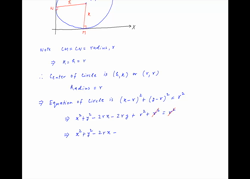 N
R
R
M
X
Note CM = CN = radius, r
⇒ h = k = r
∴ Center of Circle is (h, k) = (r, r)
Radius = r
⇒ Equation of Circle is (x-r)² + (y-r)² = r²
⇒ x² + y² - 2rx - 2ry + r² + r² = r²
⇒ x² + y² - 2rx -